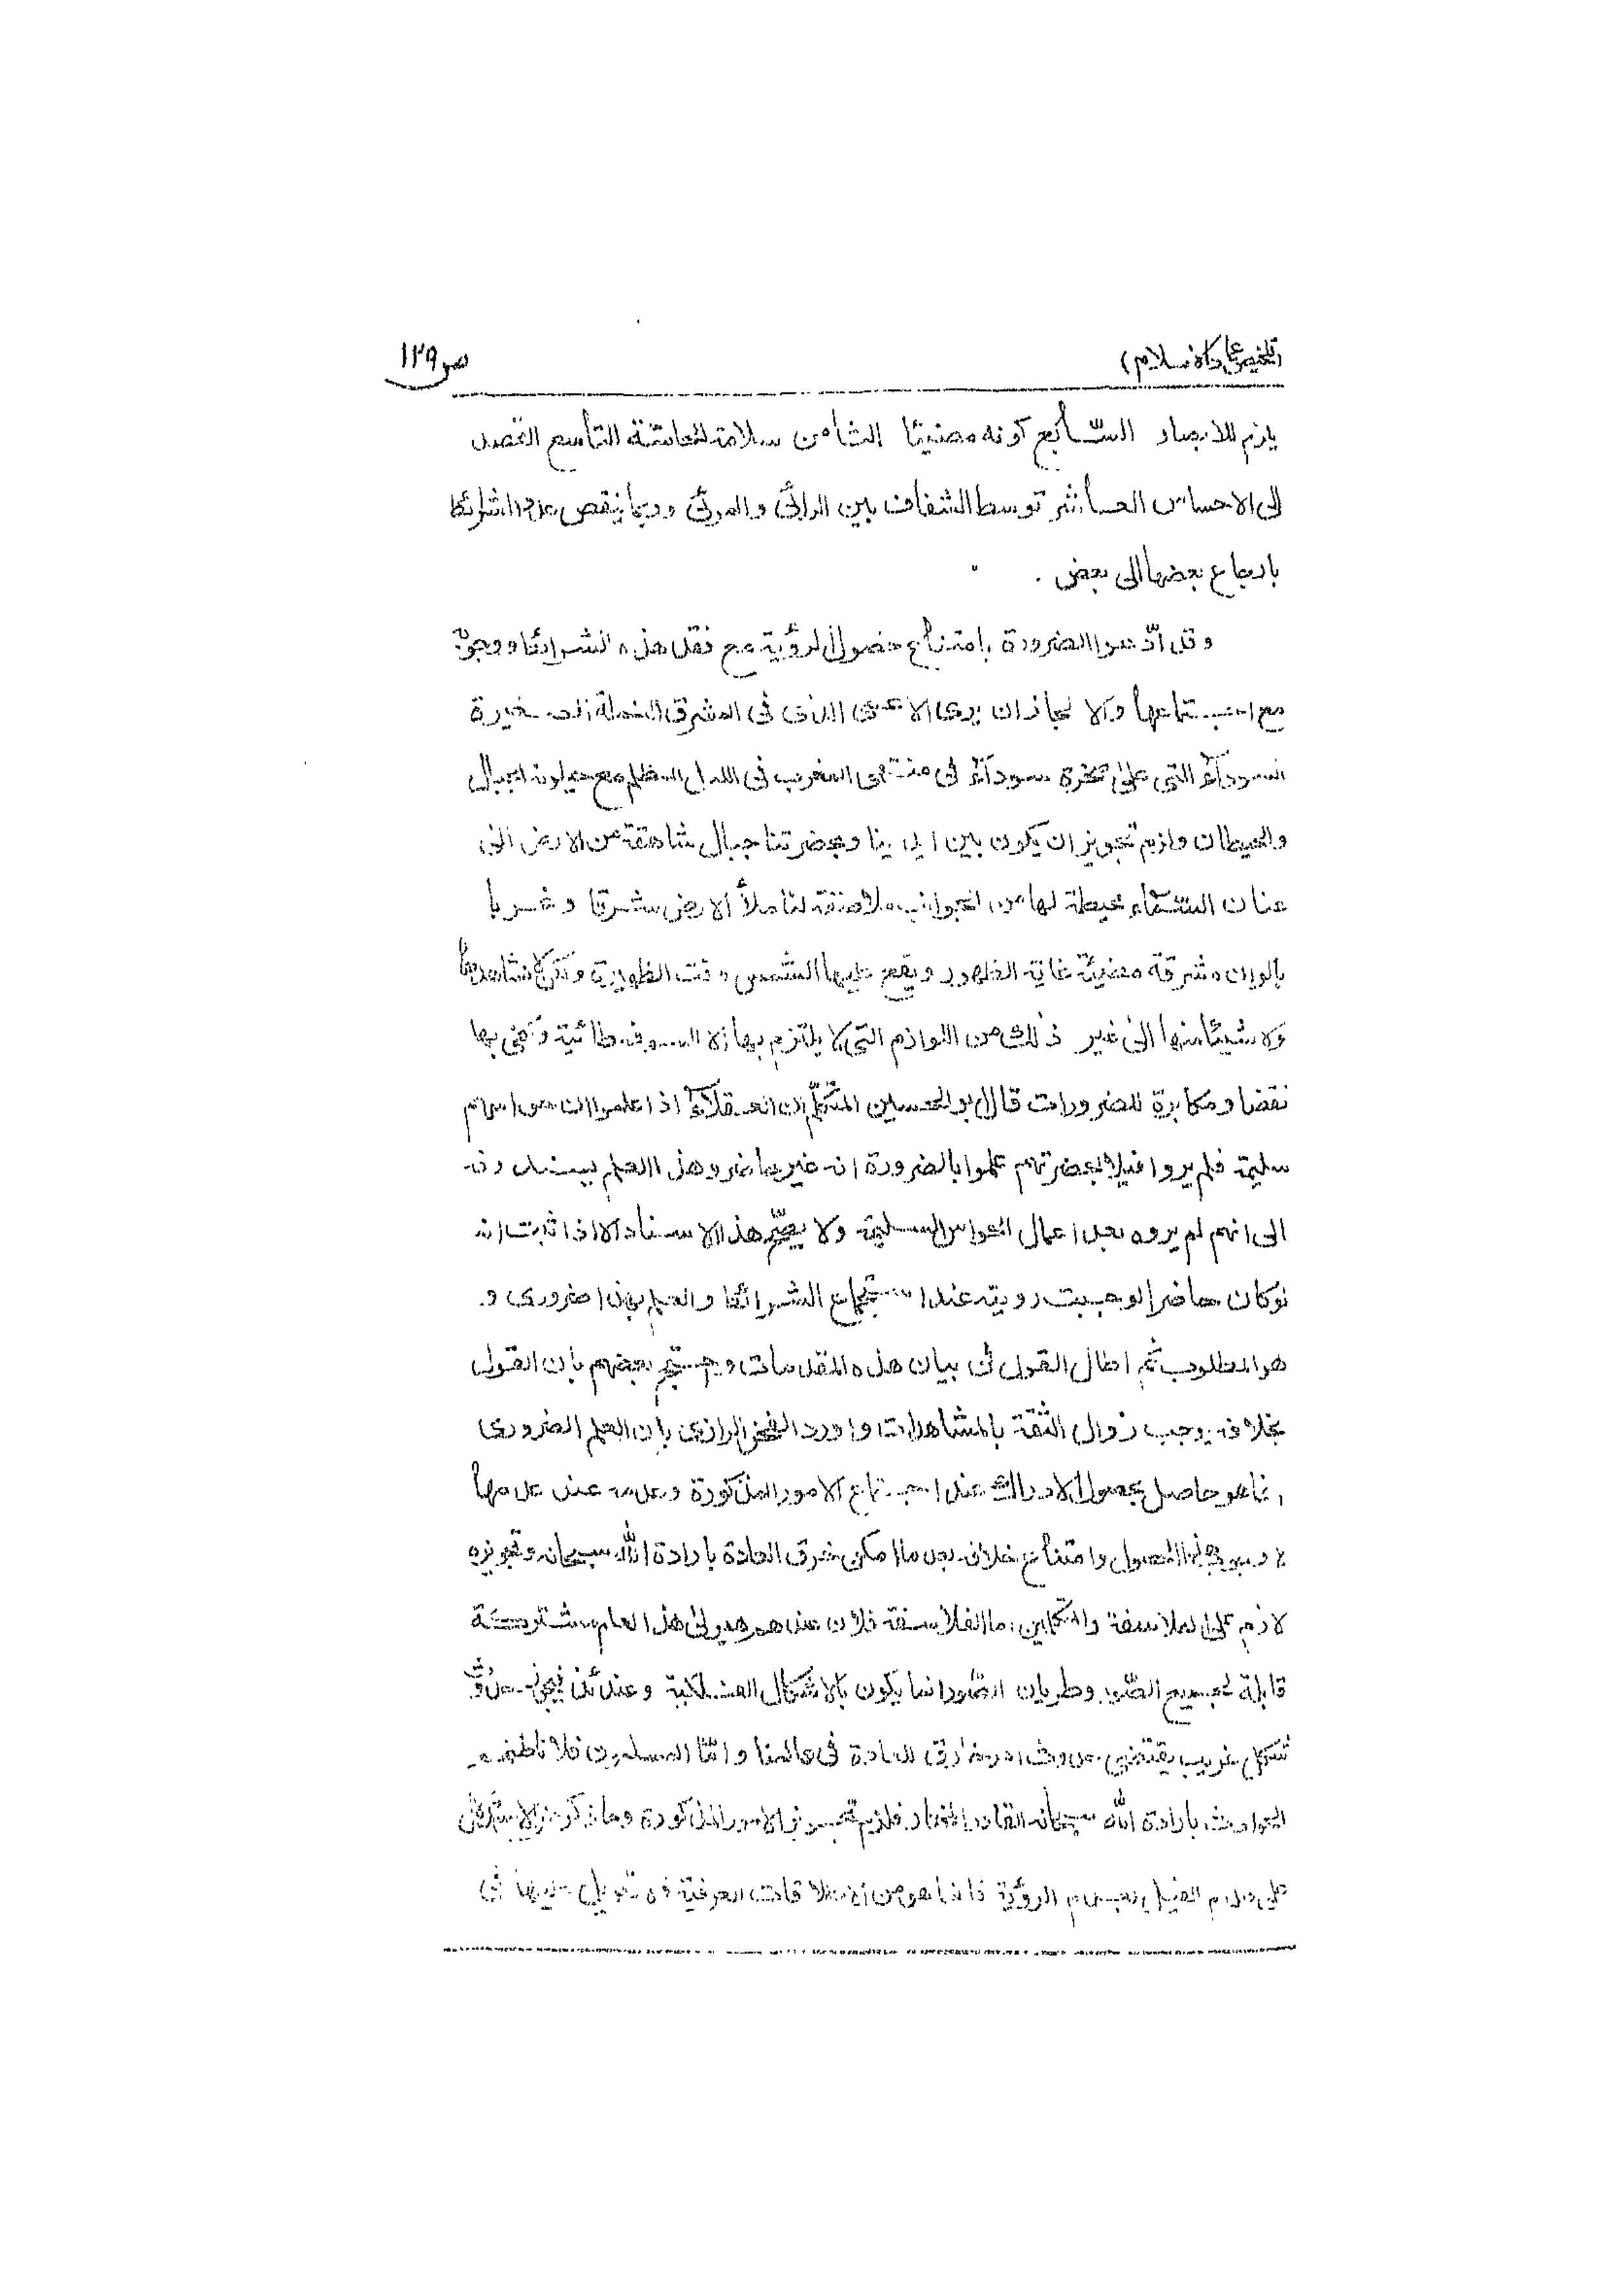 (تلخيص عماد الاسلام) ص ١٢٩
يلزم للابصار السّابع كونه مضيئا الثامن سلامة الحاسّة التاسع القصد
الى الاحساس العاشر توسط الشفاف بين الرائى والمرئى وربما ينقص عدد الشرائط
بارجاع بعضها الى بعض .
وقد ادّعوا الضرورة بامتناع حصول الرؤية مع فقد هذه الشرائط ووجوبه
مع اجتماعها والا لجاز ان يرى الاعمى الذى فى المشرق النملة الصغيرة
السوداء التى على صخرة سوداء فى منتهى المغرب فى الليل المظلم مع حيلولة الجبال
والحيطان ولزم تجويز ان يكون بين ايدينا وبحضرتنا جبال شاهقة من الارض الى
عنان السّماء محيطة لها من الجوانب ملاصقة لنا تملأ الارض شرقا وغربا
بالوان مشرقة مضيئة غاية الظهور ويقع عليها الشمس وقت الظهيرة ونحن لا نشاهدها
ولا شيئا منها الى غير ذلك من اللوازم التى لا يلتزم بها الا السوفسطائية وكفى بها
نقضا ومكابرة للضرورات قال ابو الحسين المتكلّم ان العقلاء اذا علموا ان حواسهم
سليمة فلم يروا فيلا بحضرتهم علموا بالضرورة انه غير حاضر وهذا العلم يسندونه
الى انهم لم يروه بعد اعمال الحواس السليمة ولا يصحّ هذا الاسناد الا اذا ثبت انه
لوكان حاضرا لوجبت رويته عند استجماع الشرائط والعلم بهذا ضرورى و
هو المطلوب ثم اطال القول فى بيان هذه المقدمات واحتج بعضهم بان القول
بخلافه يوجب زوال الثقة بالمشاهدات واورد الفخر الرازى بان العلم الضرورى
انما هو حاصل بحصول الادراك عند اجتماع الامور المذكورة وعدمه عند عدمها
لا بوجوب الحصول وامتناع خلافه بعد ما امكن خرق العادة بارادة الله سبحانه وتجويزه
لازم على الفلاسفة والمتكلمين اما الفلاسفة فلان عندهم هيولى هذا العالم مشتركة
قابلة لجميع الصّور وطريان الصّور انما يكون بالاشكال الفلكية وعندئذ فيجوز حدوث
شكل غريب يقتضى حدوث امر خارق للعادة فى عالمنا وامّا المسلمون فلاناطتهم
الحوادث بارادة الله سبحانه القادر المختار فلزم تجويز الامور المذكورة وما ذكر من الاستدلال
على عدم الفيل بعدم الرؤية فانما هو من الاطلاقات العرفية فى تعويل عليها فى